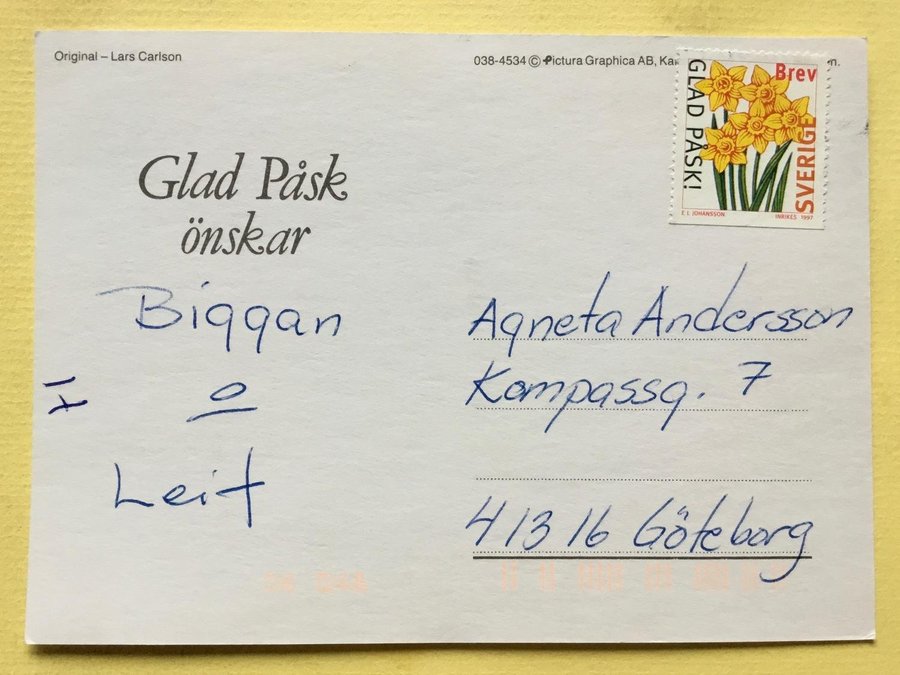 Original – Lars Carlson
038-4534 © Pictura Graphica AB,
Brev
GLAD PÅSK!
SVERIGE
E L JOHANSSON
INRIKES 1997
Glad Påsk
önskar
Biggan
o
Leif
Agneta Andersson
Kompassg. 7
413 16 Göteborg